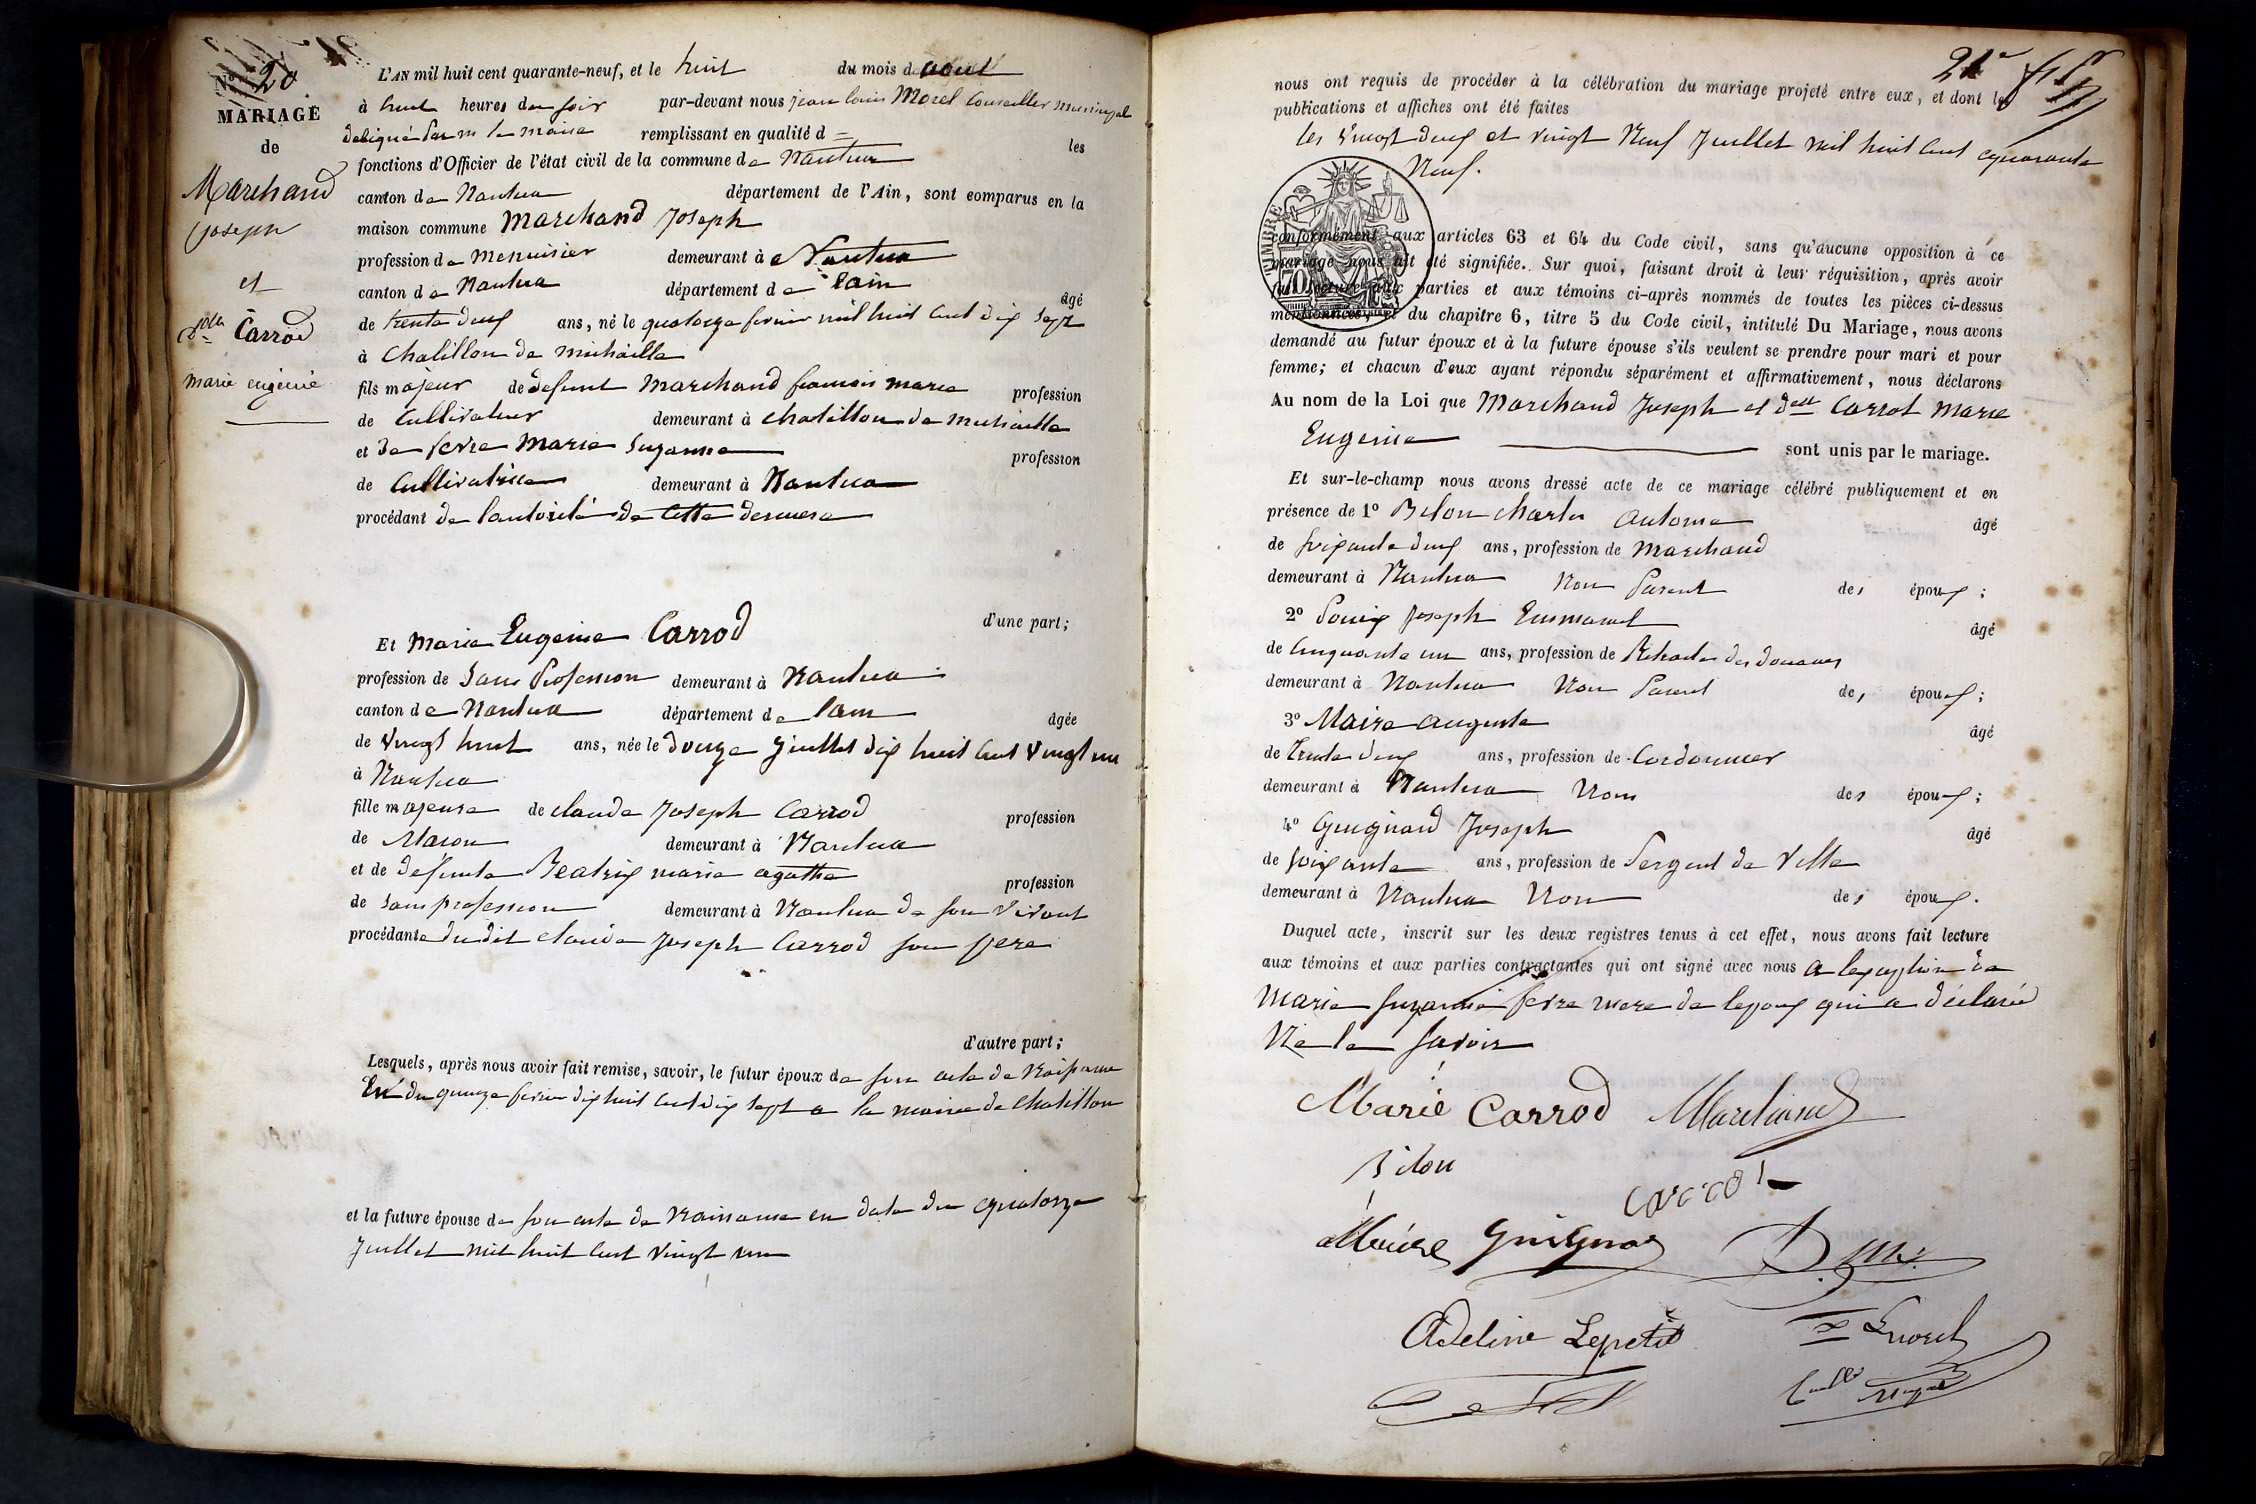 N° 20.
MARIAGE
de
Marchand
Joseph
et
dlle Carrod
marie eugenie
L'AN mil huit cent quarante-neuf, et le huit du mois d aout
à huit heures du soir par-devant nous jean louis Morel Conseiller municipal
delégué par m le maire remplissant en qualité d = les
fonctions d'Officier de l'état civil de la commune de Nantua
canton de Nantua département de l'Ain, sont comparus en la
maison commune Marchand Joseph
profession de menuisier demeurant à Nantua
canton de Nantua département de lain âgé
de trente deux ans, né le quatorze fevrier mil huit cent dix sept
à Chatillon de michaille
fils majeur de defunt Marchand francois marie profession
de Cultivateur demeurant à chatillon de michaille
et de fevre Marie Suzanne profession
de Cultivatrice demeurant à Nantua
procédant de lautorité de cette derniere
d'une part;
Et Marie Eugenie Carrod
profession de Sans Profession demeurant à Nantua
canton de Nantua département de lain âgée
de vingt huit ans, née le douze juillet dix huit cent vingt un
à Nantua
fille majeure de claude Joseph Carrod profession
de Macon demeurant à Nantua
et de defunte Beatrix marie agathe profession
de Sans profession demeurant à Nantua de son vivant
procédante dudit claude Joseph Carrod son pere
d'autre part;
Lesquels, après nous avoir fait remise, savoir, le futur époux de son acte de Naissance
du quinze fevrier dix huit cent dix sept a la mairie de Chatillon
et la future épouse de son acte de Naissance en date du quatorze
Juillet mil huit cent vingt un
21e
nous ont requis de procéder à la célébration du mariage projeté entre eux, et dont les
publications et affiches ont été faites
les vingt deux et vingt Neuf Juillet mil huit cent quarante
Neuf.
TIMBRE
70
conformément aux articles 63 et 64 du Code civil, sans qu'aucune opposition à ce
mariage nous ait été signifiée. Sur quoi, faisant droit à leur réquisition, après avoir
fait lecture aux parties et aux témoins ci-après nommés de toutes les pièces ci-dessus
mentionnées, et du chapitre 6, titre 5 du Code civil, intitulé Du Mariage, nous avons
demandé au futur époux et à la future épouse s'ils veulent se prendre pour mari et pour
femme; et chacun d'eux ayant répondu séparément et affirmativement, nous déclarons
Au nom de la Loi que Marchand Joseph et delle Carrot Marie
Eugenie sont unis par le mariage.
Et sur-le-champ nous avons dressé acte de ce mariage célébré publiquement et en
présence de 1° Belon charles antoine âgé
de soixante deux ans, profession de Marchand
demeurant à Nantua Non Parent des époux;
2° Joseph Emmanuel âgé
de Cinquante un ans, profession de Retraite des douanes
demeurant à Nantua Non Parent des époux;
3° Maire auguste âgé
de trente deux ans, profession de Cordonnier
demeurant à Nantua Non des époux;
4° Guignard Joseph âgé
de soixante ans, profession de Sergent de Ville
demeurant à Nantua Non des époux.
Duquel acte, inscrit sur les deux registres tenus à cet effet, nous avons fait lecture
aux témoins et aux parties contractantes qui ont signé avec nous a lexception de
Marie Suzanne fevre mere de lepoux qui a déclaré
Ne le savoir
Marie Carrod Marchand
Bilon
Carrot
Maire Guignar
Adeline Lepetit Morel